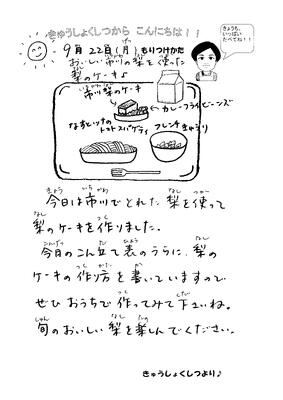 きゅうしょくしつから こんにちは！！
きょうも、
いっぱい
たべてね！！
9月22日(月) もりつけかた
おいしい市川の梨を使った
梨のケーキ♪
市川梨のケーキ
カレーフライビーンズ
なすとツナの
トマトスパゲティ
フレンチきゅうり
今日は市川でとれた梨を使って
梨のケーキを作りました。
今月のこん立て表のうらに、梨の
ケーキの作り方を書いていますので
ぜひおうちで作ってみて下さいね。
旬のおいしい梨を楽しんでください。
きゅうしょくしつより♪